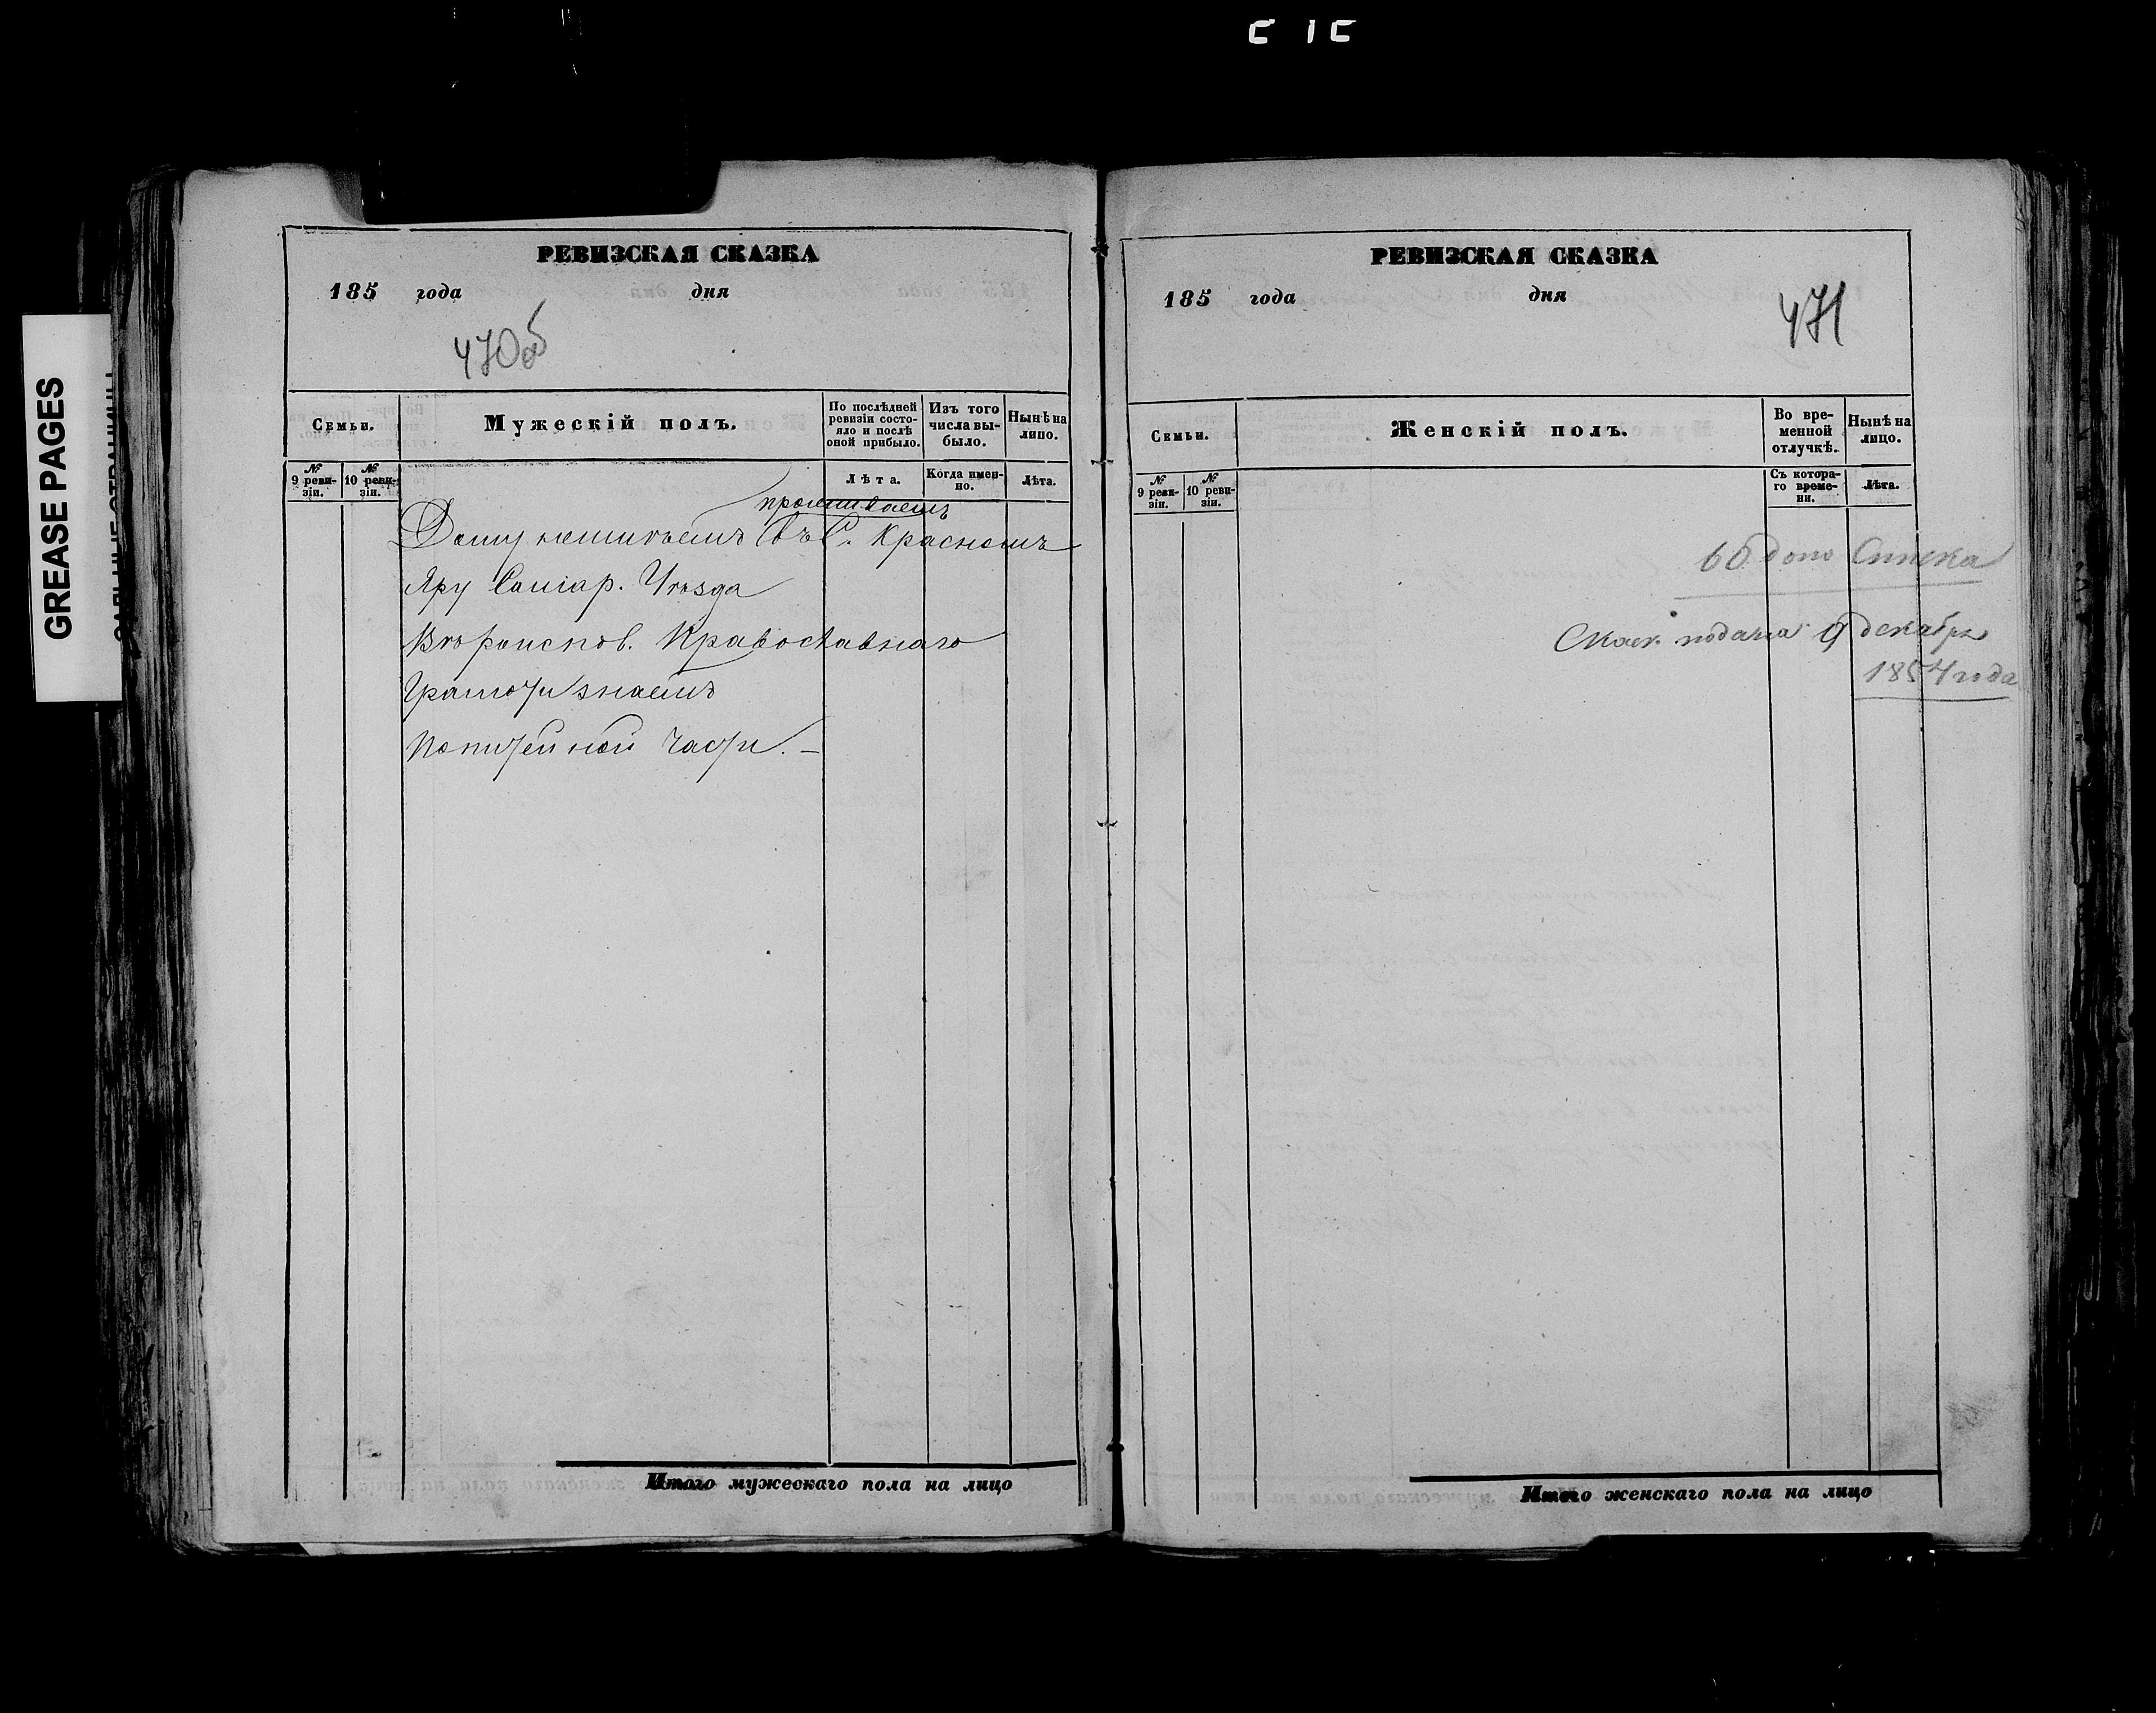 GREASE PAGES
РЕВИЗСКАЯ СКАЗКА
185 года дня
470об
Семьи.
Мужескій полъ.
По послѣдней ревизіи состояло и послѣ оной прибыло.
Изъ того числа выбыло.
Нынѣ на лицо.
№ 9 ревизіи.
№ 10 ревизіи.
Лѣта.
Когда именно.
Лѣта.
проживаетъ
Дому неимѣетъ въ С. Красномъ
Яру Самар. Уѣзда
Вѣроиспов. Православнаго
Грамоти знаетъ
Полицейской части. –
Итого мужескаго пола на лицо
РЕВИЗСКАЯ СКАЗКА
185 года дня
471
Семьи.
Женскій полъ.
Во временной отлучкѣ.
Нынѣ на лицо.
№ 9 ревизіи.
№ 10 ревизіи.
Съ котораго времени.
Лѣта.
Списка
Сказк. подана 9 декабря
1857 года
Итого женскаго пола на лицо